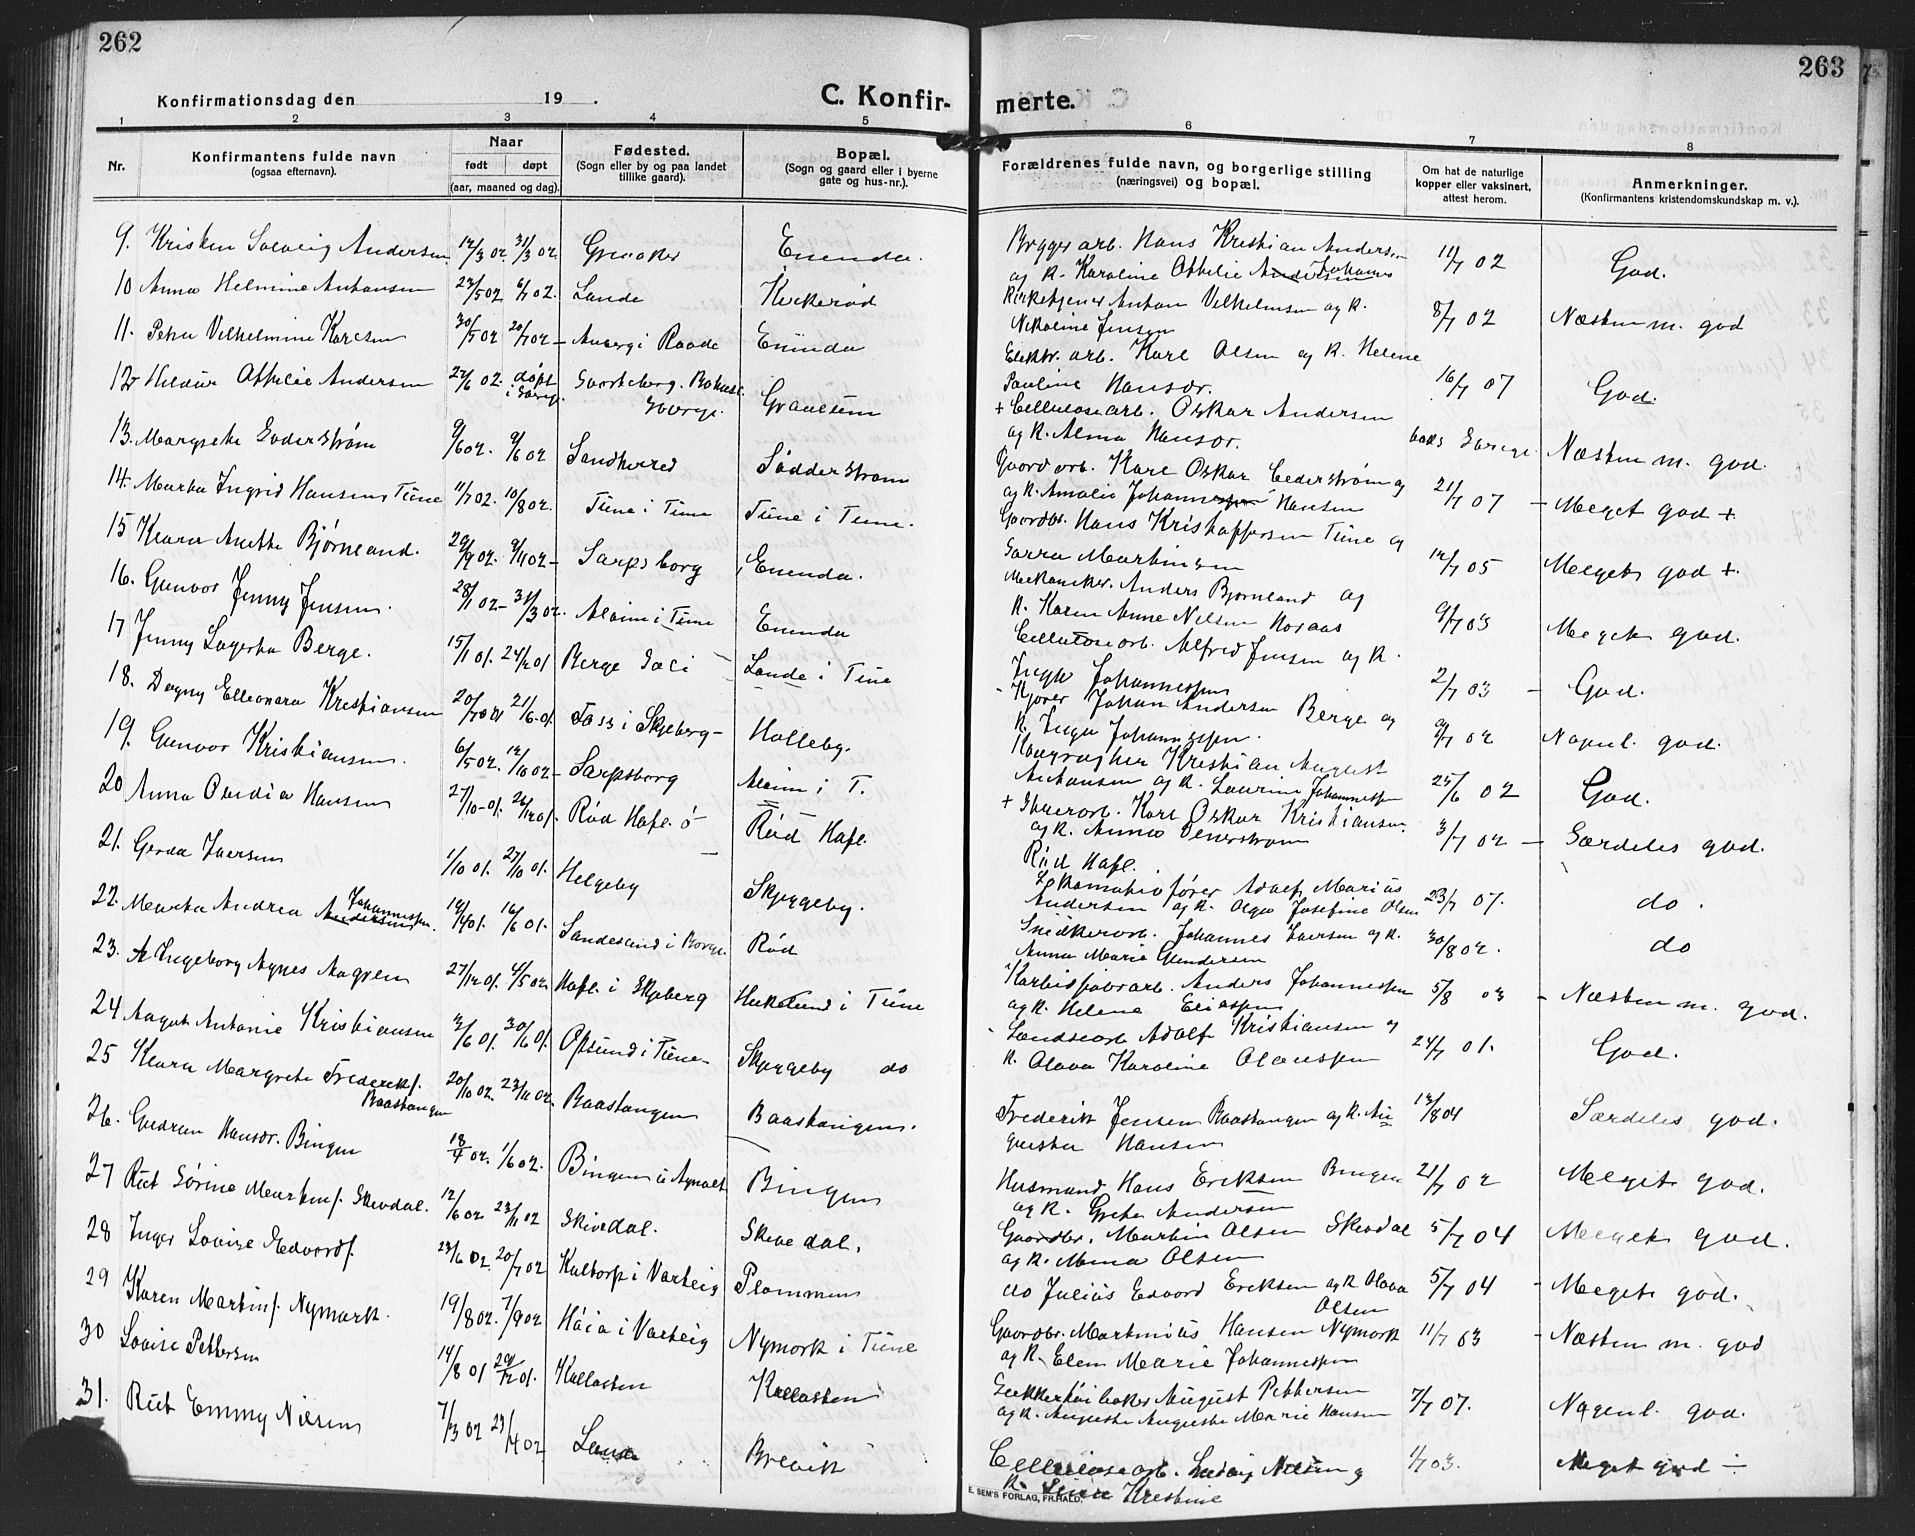 262
Konfirmationsdag den 19 .
C. Konfir-
1 2 3 4 5
Nr.
Konfirmantens fulde navn
(ogsaa efternavn).
Naar
født døpt
(aar, maaned og dag).
Fødested.
(Sogn eller by og paa landet
tillike gaard).
Bopæl.
(Sogn og gaard eller i byerne
gate og hus-nr.).
9. Kristen Solveig Andersen 12/3 02 31/3 02 Greaaker Enenda.
10 Anna Helmine Antonsen 23/5 02 6/7 02. Lande Kirkerød
11. Petra Vilhelmine Karlsen 30/5 02 20/7 02 – Aaberg i Raade Enenda
12 Hildur Othilie Andersen 22/6 02. døpt i Sverge Svarteborg. Bohusl. Sverge. Graalum
13. Margrete Soderstrøm 9/6 02. 9/6 02 Sandherred Sødderstrøm
14. Marta Ingrid Hansen Tune 11/7 02. 10/8 02. Tune i Tune Tune i Tune.
15 Klara Anette Bjørneland. 29/9 02. 9/11 02 – Sarpsborg Enenda.
16. Gunvor Jenny Jensen. 28/1 02 – 31/3 02. Alvim i Tune Enenda
17 Jenny Lagerta Berge. 15/1 01. 24/2 01 Berge Lande i Tune
18. Dagny Elleonora Kristiansen 20/7 00 21/6 01. Foss i Skjeberg – Halleby.
19. Gunvor Kristiansen. 6/5 02. 12/10 02 – Sarpsborg Alvim i T.
20 Anna Hansen 27/10 – 01. 26/12 01. Rød Hafl. ö – Rød Hafl.
21. Gerda Iversen 1/10 01. 27/10 01. Helgeby Skjeggeby.
22. Marta Andrea Andersen Johannessen. 14/4 01. 16/6 01. Sandesund i Borge. Rød
23. Ingeborg Agnes Aagren 27/12 01. 4/5 02. Hafl. i Skjeberg i Tune
24 Aagot Antonie Kristiansen 3/6 01. 30/6 01. Opsund i Tune – Skjeggeby do
25 Klara Margrete Frederiks. Baastangen 20/10 02. 23/11 02. Baastangen Baastangen.
26. Gudrun Hansdr. Bingen 18/4 02. 1/6 02. Bingen Bingen
27 Rut Sørine Martins. Skivdal. 12/6 02. 23/11 02 Skivedal. Skivedal.
28 Inger Lovise Edvards. 23/6 02. 20/7 02 Kaltorp i Varteig Plommen
29 Karen Martins. Nymark. 19/8 02. 7/9 02. Haia i Varteig Nymark i Tune
30 Lovise Pettersen 14/8 01 29/12 01. Kallasten Kallasten
31. Rut Emmy Nilsen 7/3 02 23/4 02 Lande Brevik
263
merte.
6 7 8
Forældrenes fulde navn, og borgerlige stilling
(næringsvei) og bopæl.
Om hat de naturlige
kopper eller vaksinert,
attest herom.
Anmerkninger.
(Konfirmantens kristendomskundskap m. v.).
Brygger arb. Hans Kristian Andersen
og k. Karoline Othilie Andersen Johans 11/7 02 God.
Kirketjener Anton Vilhelmsen og k.
Nikoline Jensen 8/7 02 Næsten m. god
Elektr. arb. Karl Olsen og k. Helene
Pauline Hansdr. 16/7 07 God.
+ Cellulosearb. Oskar Andersen
og k. Alma Hansdr. Sverge Næsten m. god.
Gaard arb. Karl Oskar Cederstrøm og
og k. Amalie Johannessen Hansen 21/7 07 – Meget god +
Gaardbr. Hans Kristoffersen Tune og
Sarra Martinsen 12/7 05 Meget god +
Mekaniker. Anders Bjørneland og
k. Karen Anne Nilsen Horaas 9/7 03 Meget god.
Cellulosearb. Alfred Jensen og k.
Inga Johannessen 2/7 03 – God.
Kjører Johan Andersen Berge og
k. Inga Johannessen. 9/7 02 Nogenl. god.
Kristian August
Antonsen og k. Laurine Johannessen 25/6 02 God.
+ Karl Oskar Kristiansen.
og k. Anna 3/7 02 – Særdeles god.
Rød Hafl.
Lokomotivfører Adolf Marius
Andersen og k. Olga Josefine Olsen 23/7 07. do.
Snidkerarb. Johannes Iversen og k.
Anna Marie Gundersen 30/8 02. do
Karbidfabr arb. Anders Johannessen
og k. Helene Eliassen 5/8 03 – Næsten m. god.
Landsearb Adolf Kristiansen og
k. Olava Karoline Olaussen 24/7 01. God.
Frederik Jensen Baastangen og k. Au-
gusta Hansen 13/8 04 Særdeles god.
Husmand Hans Eriksen Bingen
og k. Grete Andersen 21/7 02 Meget god.
Gaardbr. Martin Olsen Skivdal
og k. Mina Olsen 5/7 04 Meget god.
do Julius Edvard Eriksen og k Olava
Olsen 5/7 04 – Meget god.
Gaardbr. Martinius Hansen Nymark
og k. Elen Marie Johannessen 11/7 03 – Næsten m. god
August Pettersen
og k. Auguste Marie Hansen 7/7 07. Nogenl. god.
Cellulosearb. Ludvig Nilsen og
k. Kristine 1/7 03. Meget god –
E. SEM'S FORLAG, FR.HALD.